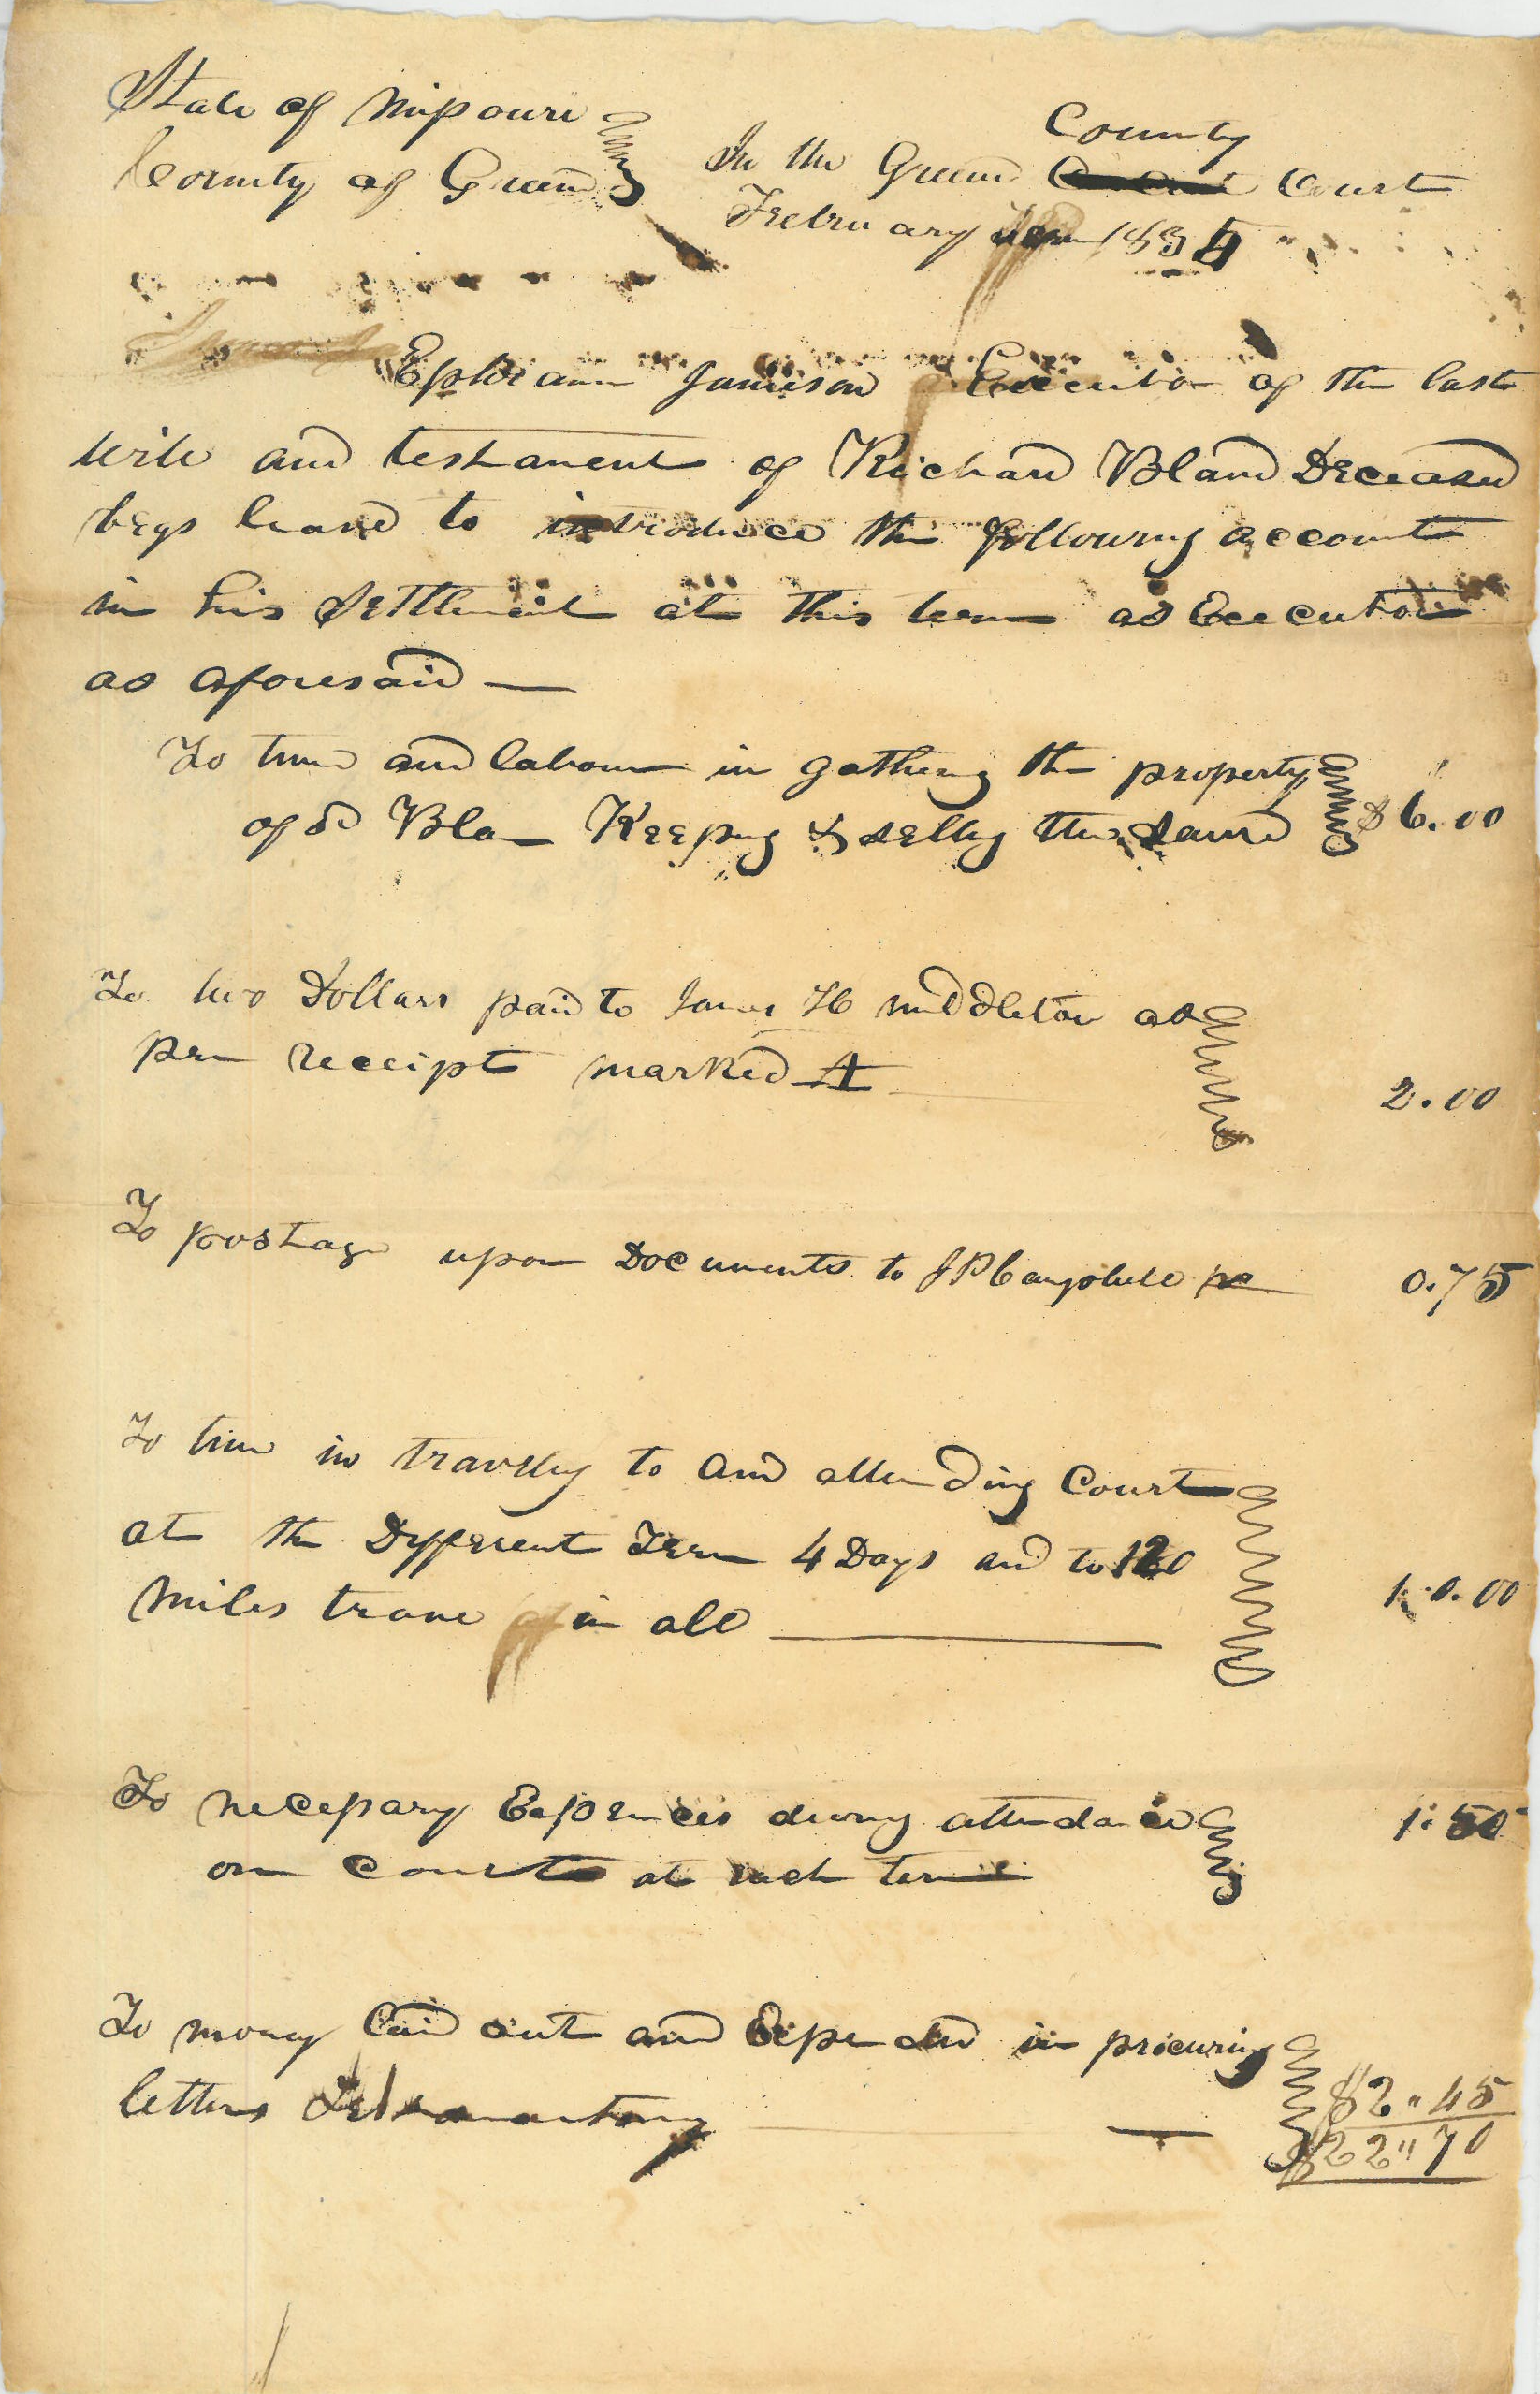 State of Missouri
County of Greene
In the Greene County Court
February term 1834
Ephraim Jamison Executor of the last
will and testament of Richard Bland Deceased
begs leave to introduce the following account
in his settlement at this term as Executor
as aforesaid —
To time and labour in gathering the property
of sd Blan Keeping & selling the same $6.00
To two Dollars paid to James H middleton as
per receipt marked A 2.00
To postage upon Documents to J P Campbell 0.75
To time in travelling to and attending Court
at the Different Term 4 Days and to 120
miles trave in all 10.00
To necessary Expences during attendance 1.50
on Court at each term
To money laid out and Expended in procuring
letters Testamentary — $2"45
$22"70